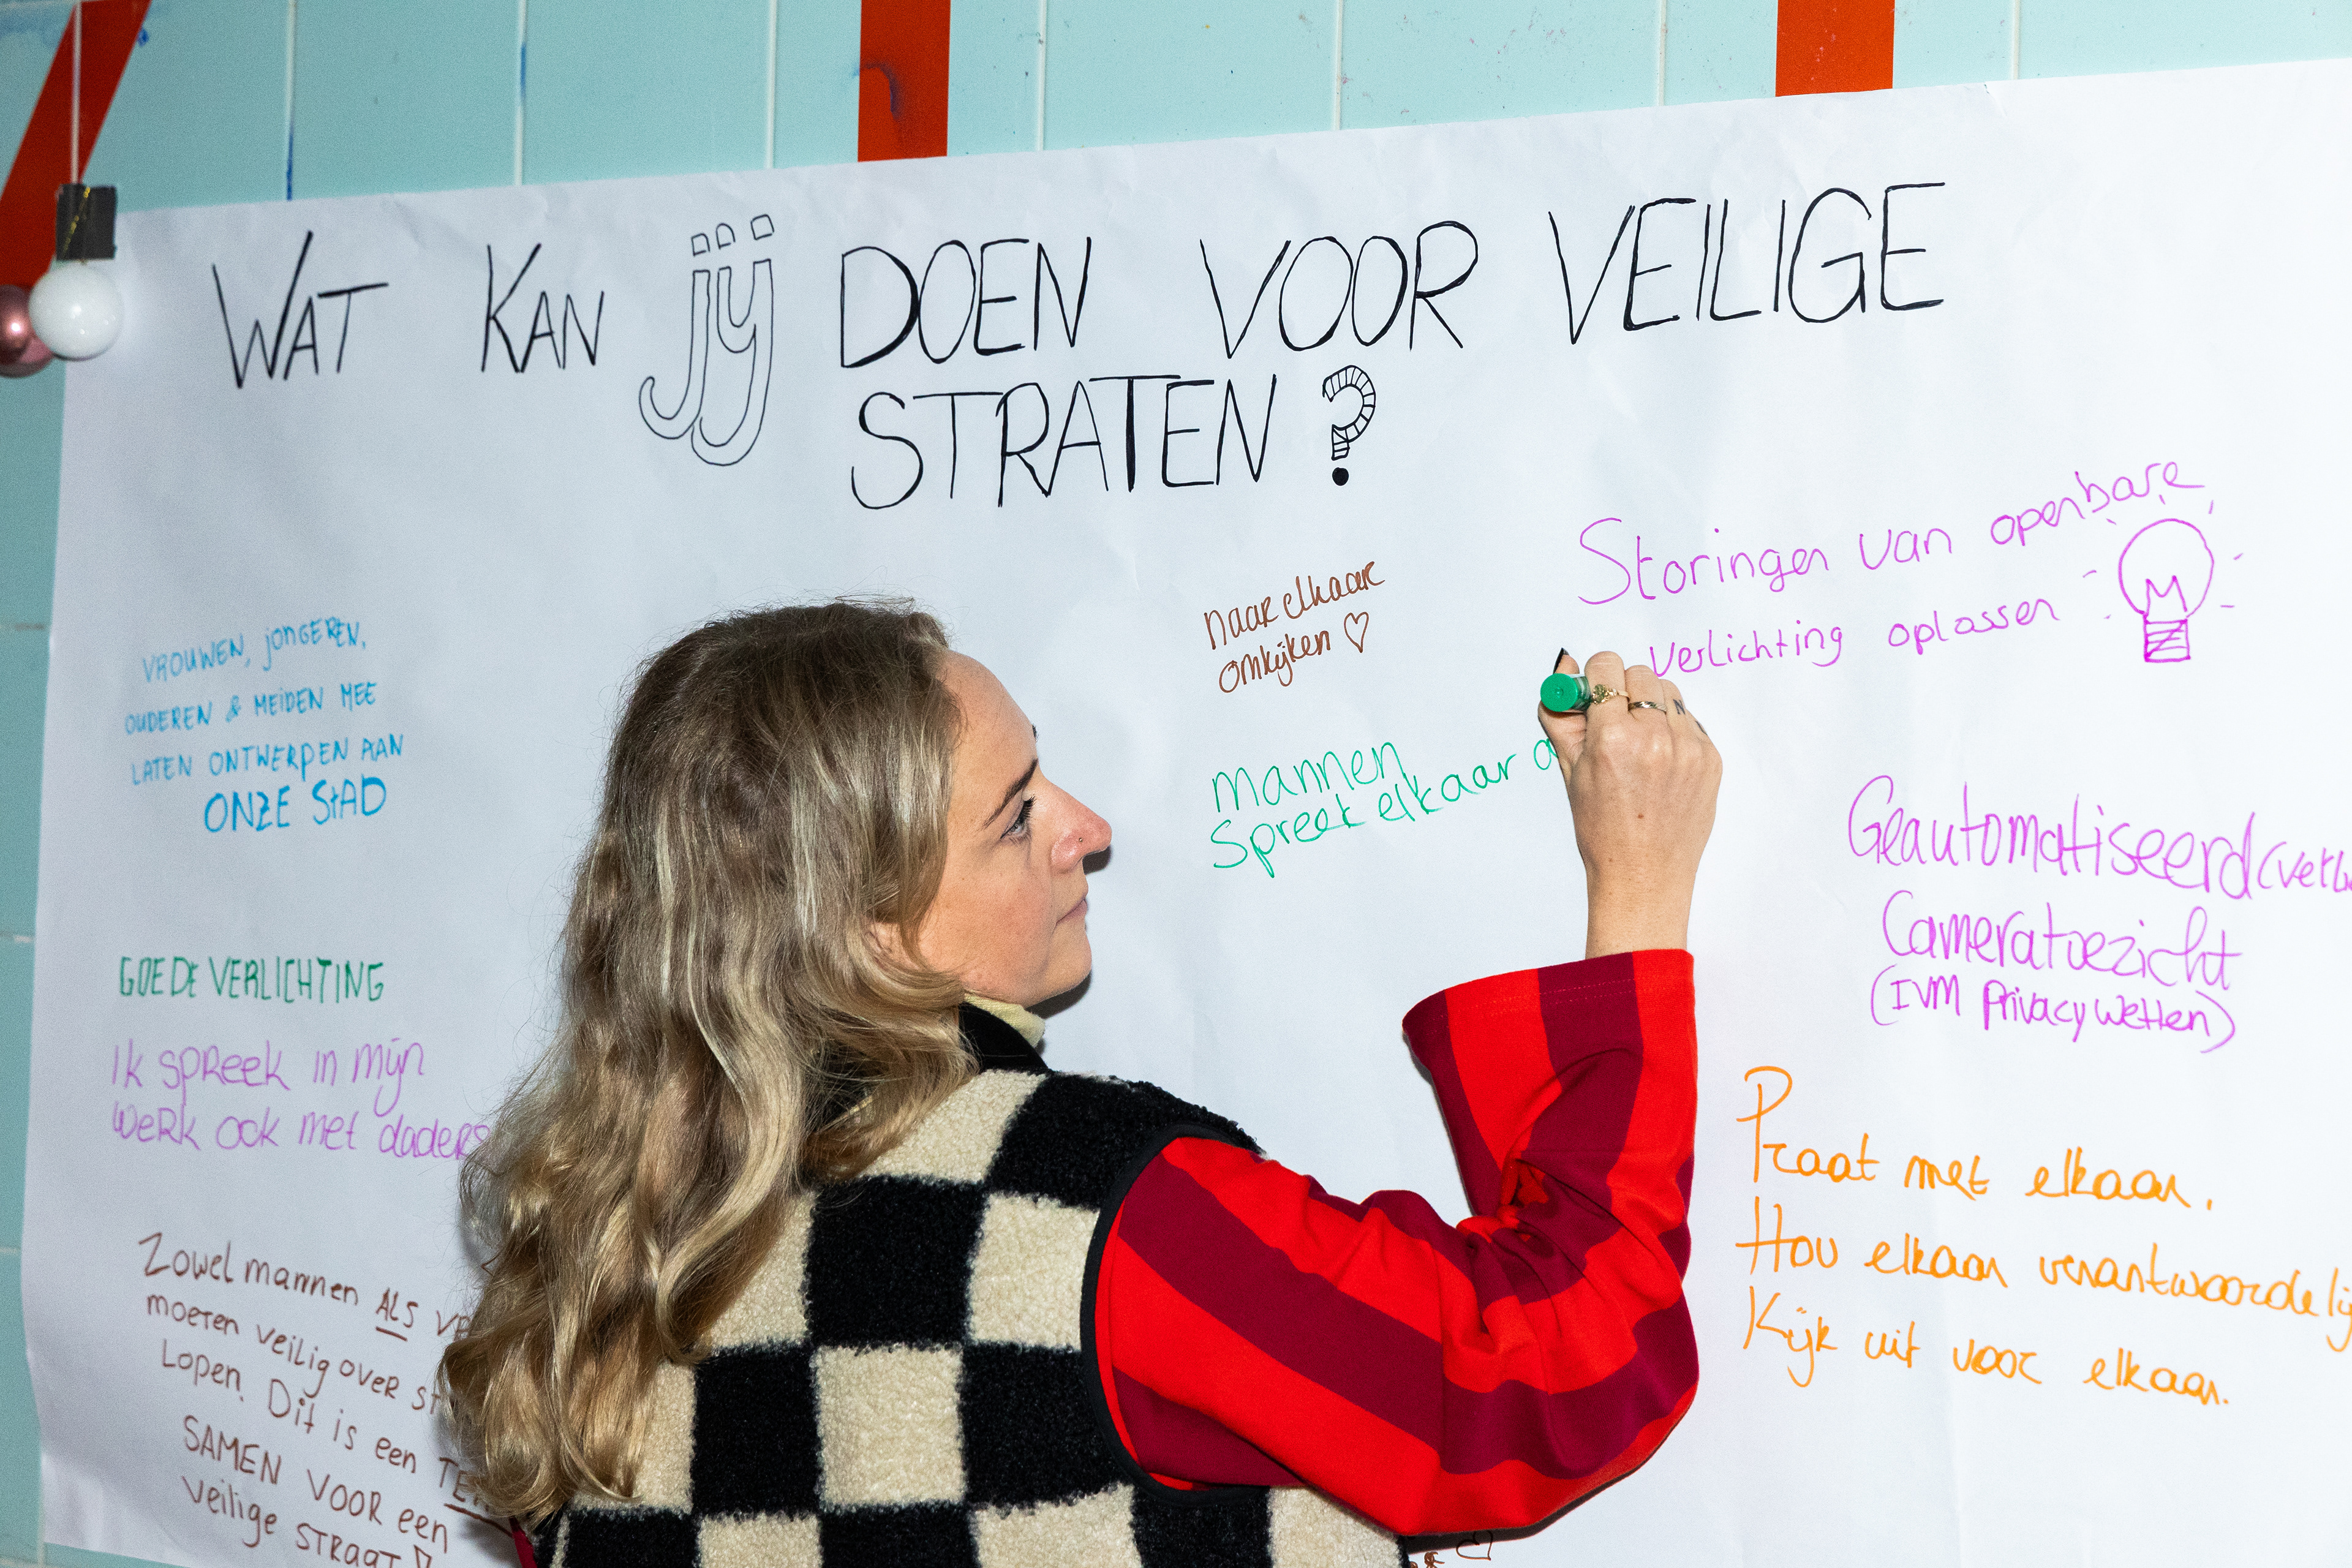 WAT KAN jij DOEN VOOR VEILIGE
STRATEN?
VROUWEN, jONGEREN,
OUDEREN & MEIDEN MEE
LATEN ONTWERPEN AAN
ONZE StAD
GOEDE VERLICHTING
Ik spreek in mijn
werk ook met daders
Zowel mannen ALS
moeten veilig over
Lopen. Dit is een
SAMEN VOOR een
veilige STRAAT
naar elkaar
omkijken ♡
mannen
Spreek elkaar
Storingen van openbare
verlichting oplossen
Geautomatiseerd
Cameratoezicht
(IVM Privacy wetten)
Praat met elkaar.
Hou elkaar
Kijk uit voor elkaar.